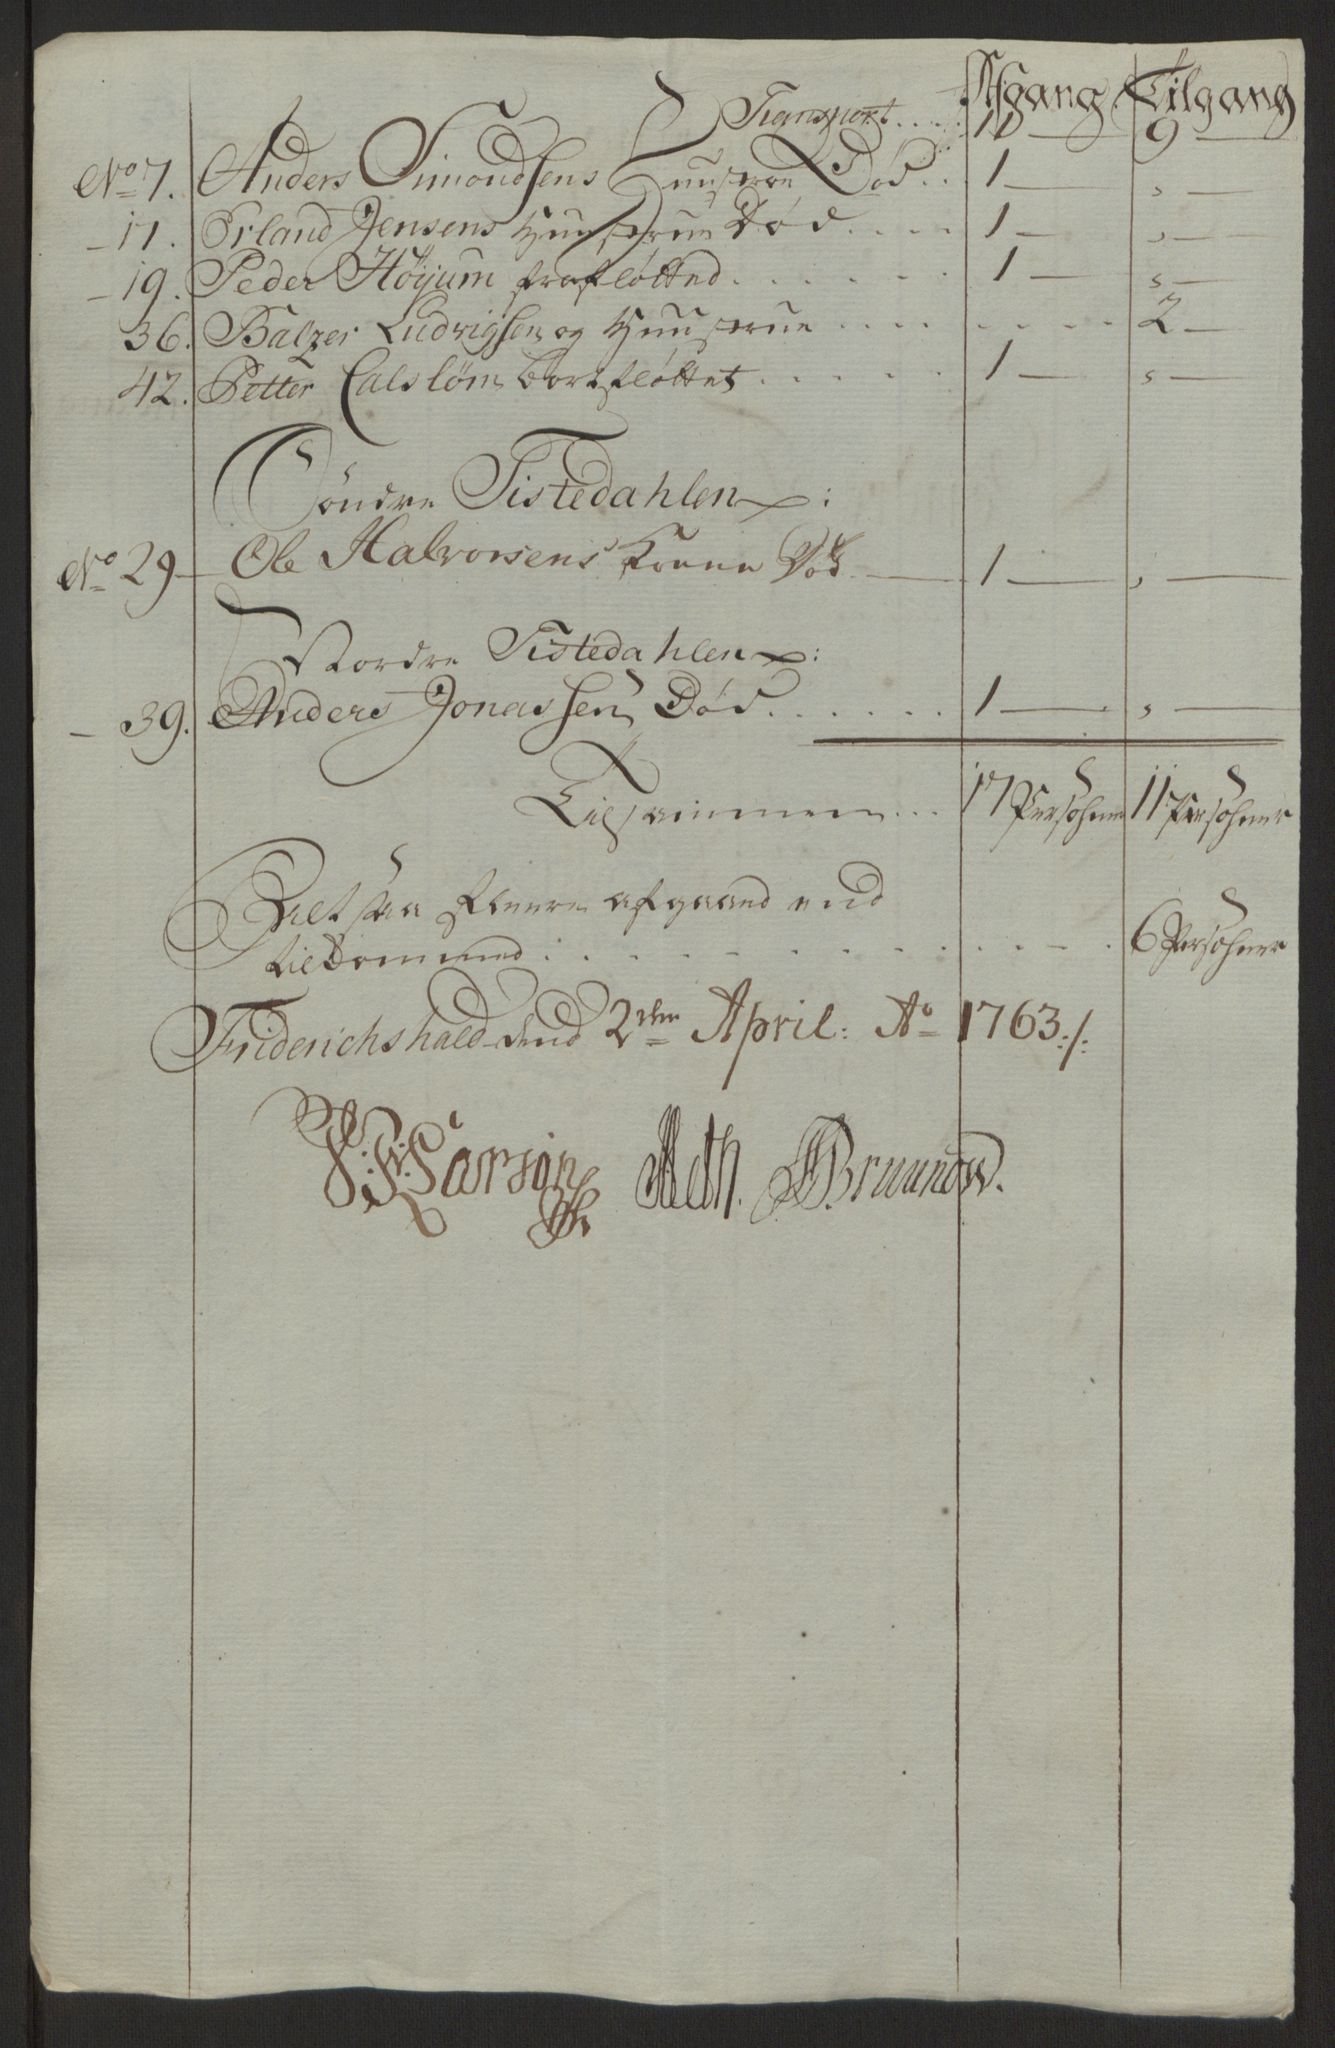 Afgang Tilgang
Transport..... 11 — 9 —
No 7. Anders Simondsens Huustrue Død... 1 — „ —
— 17. Erland Jensens Huustrue Død.... 1 — „ —
— 19. Peder Höyum frafløtted...... 1 — „ —
36. Balzer Ludvigsen og Huustrue ........ 2 —
42. Petter Calslöm bortfløttet...... 1 — „ —
Søndre Tistedahlen:
No 29 — Ole Halvorsens Kone Død — 1 — „ —
Nordre Tistedahlen:
— 39. Anders Jonassen Død...... 1 — „ —
Tilsammen... 17 Persohner 11 Persohner
Altsaa fleere afgaaed end
tilkommed: ......... 6 Persohner
Friderichshald dend 2den April: Ao 1763./.
Larson Meth. Bruunow.